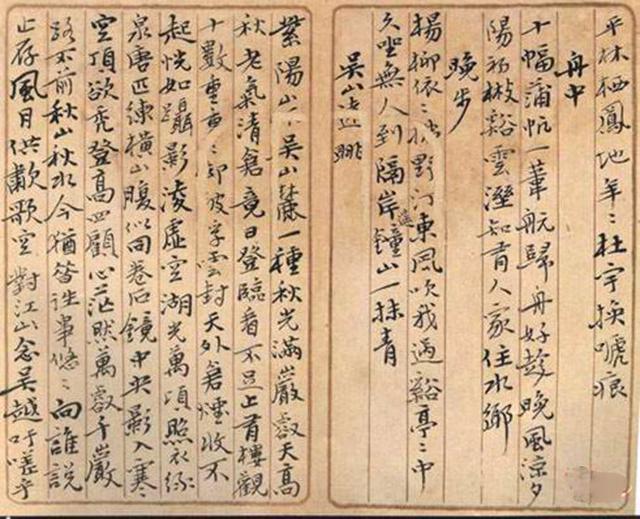 平林栖鳳地年〻杜宇換啼痕
舟中
十幅蒲帆一葦航歸舟好趁晚風涼夕
陽初散谿雲溼知有人家住水鄉
晚步
楊柳依〻拂野汀東風吹我過谿亭〻中
久坐無人到隔岸遙鐘山一抹青
吳山遠眺
紫陽山下吳山麓一種秋光滿巖壑天高
秋老氣清蒼竟日登臨看不足上有樓觀
十數重畫〻郎波字雲封天外蒼煙收不
起恍如躡影淩虛空湖光萬頃照衣綠
泉唐匹練橫山腹似回卷石鏡中央影入寒
空頂欲禿登高四顧心茫然萬壑千巖
路不前秋山秋水今猶昔往事悠〻向誰說
止存風月供歗歌空對江山念吳越吁嗟乎